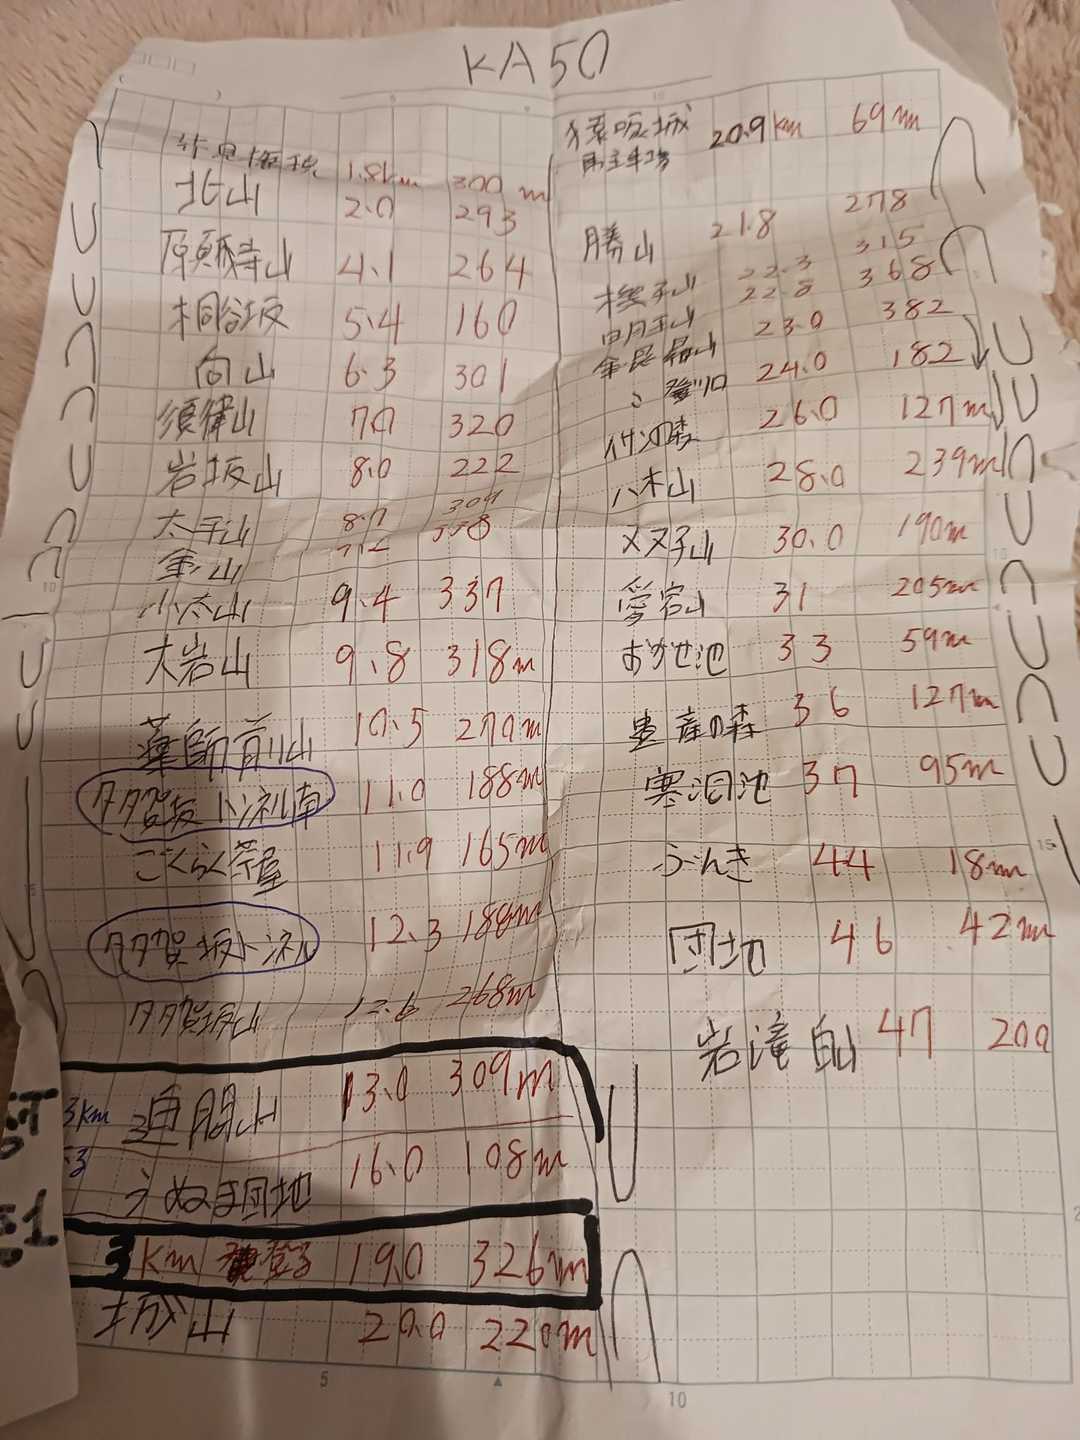 KA50
1.8km 300m
北山 2.0 293
4.1 264
桐谷坂 5.4 160
向山 6.3 301
須律山 7.0 320
岩坂山 8.0 222
太平山 8.7 309
金山
小太山 9.4 337
大岩山 9.8 318m
薬師前山 10.5 270m
タタ賀坂トンネル南 11.0 188m
ごくらく茶屋 11.9 165m
タタ賀坂トンネル 12.3 188m
タタ賀坂山 12.6 268m
3km 13.0 309m
うぬま団地 16.0 108m
3km 19.0 326m
城山 20.0 220m
猿啄城 20.9km 69m
駐車場
勝山 21.8 278
22.3 315
22.8 368
23.0 382
〃登り口 24.0 182
26.0 127m
八木山 28.0 239m
30.0 190m
愛宕山 31 205m
おがせ池 33 59m
36 127m
寒洞池 37 95m
ぶんき 44 18m
団地 46 42m
岩滝白山 47 200